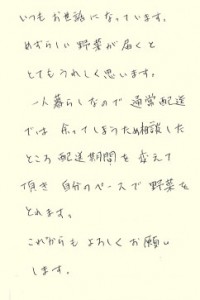 いつもお世話になっています。
めずらしい野菜が届くと
とてもうれしく思います。
一人暮らしなので 通常配送
では 余ってしまうため相談した
ところ 配送期間を変えて
頂き 自分のペースで野菜を
とれます。
これからも よろしくお願い
します。